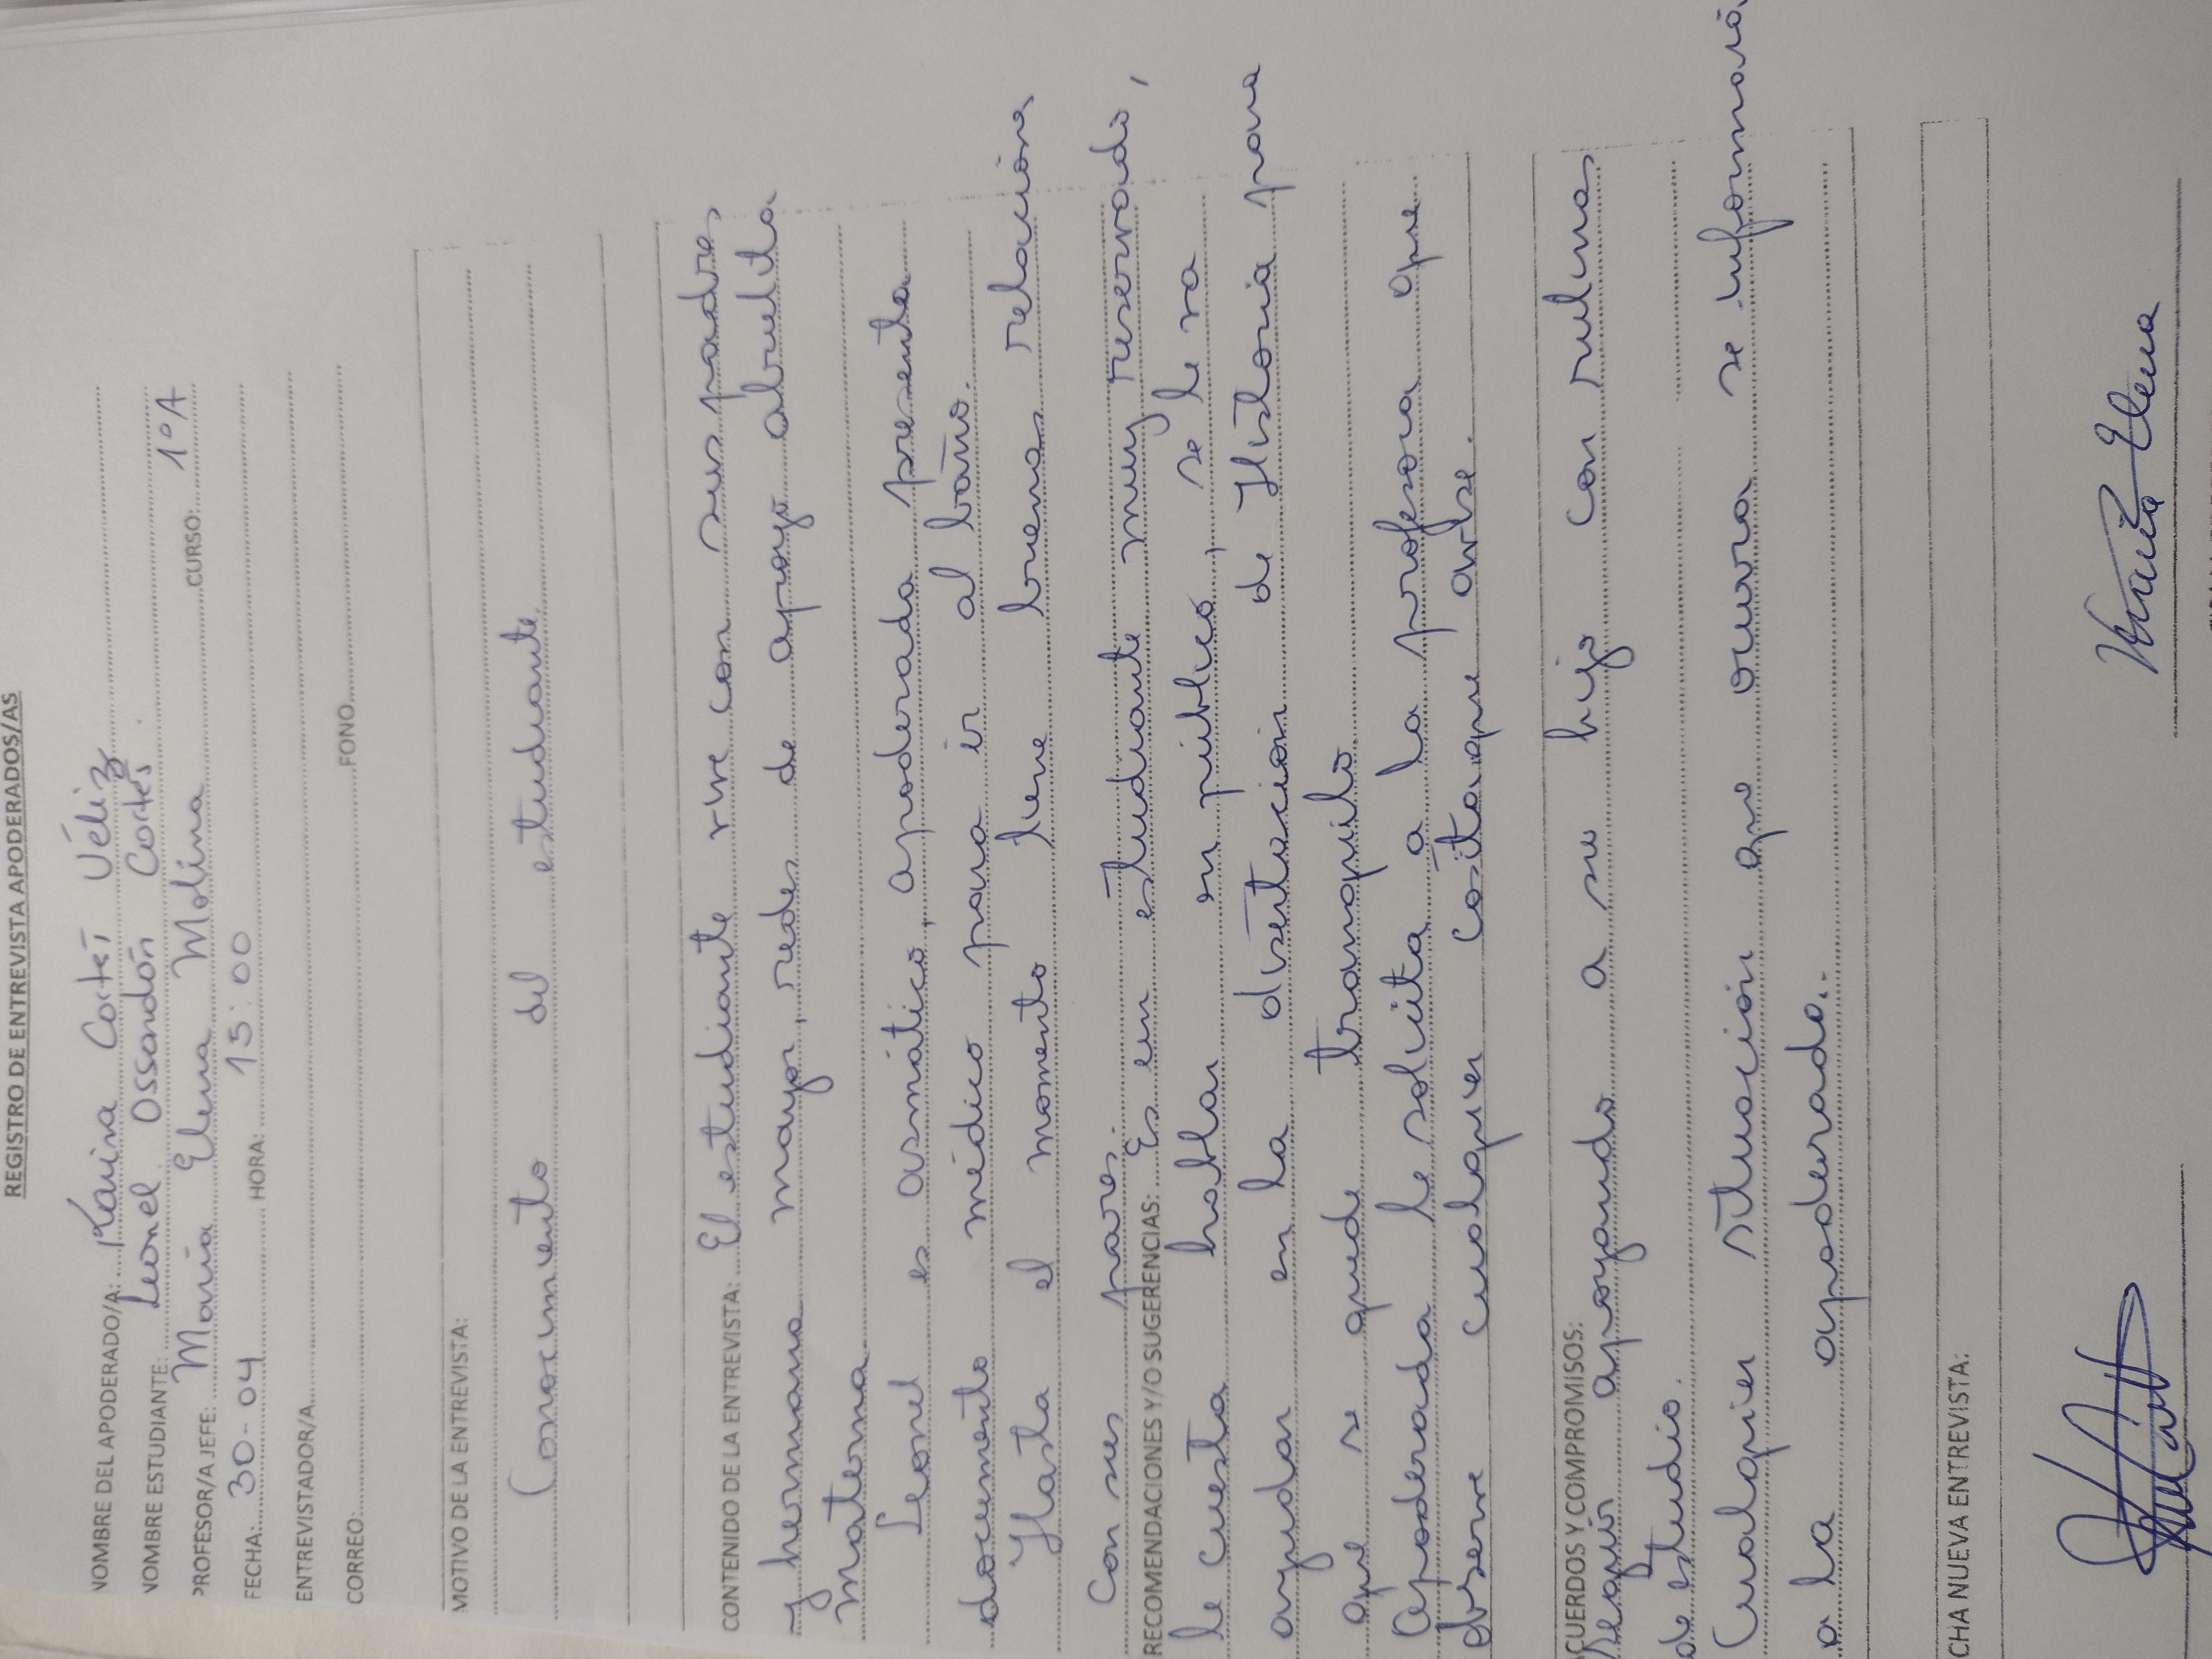 REGISTRO DE ENTREVISTA APODERADOS/AS
NOMBRE DEL APODERADO/A: Karina Cortes Véliz
NOMBRE ESTUDIANTE: Leonel Ossandón Cortés.
PROFESOR/A JEFE: María Elena Molina CURSO: 1°A
FECHA: 30-04 HORA: 15:00
ENTREVISTADOR/A
CORREO: FONO
MOTIVO DE LA ENTREVISTA:
Conocimiento del estudiante
CONTENIDO DE LA ENTREVISTA: El estudiante vive con sus padres
y hermano mayor, redes de apoyo abuelita
materna
Leonel es asmático, apoderada presenta
documento médico para ir al baño.
Hasta el momento tiene buenas relaciones
con sus pares.
RECOMENDACIONES Y/O SUGERENCIAS: Es un estudiante muy reservado,
le cuesta hablar en público, se le va
ayudar en la disertación de Historia para
que se quede tranquilo
Apoderada le solicita a la profesora que
observe cualquier cosita que avise.
ACUERDOS Y COMPROMISOS:
Seguir apoyando a su hijo con rutinas
de estudio.
Cualquier situación que ocurra se informará
a la apoderada..
CHA NUEVA ENTREVISTA:
María Elena